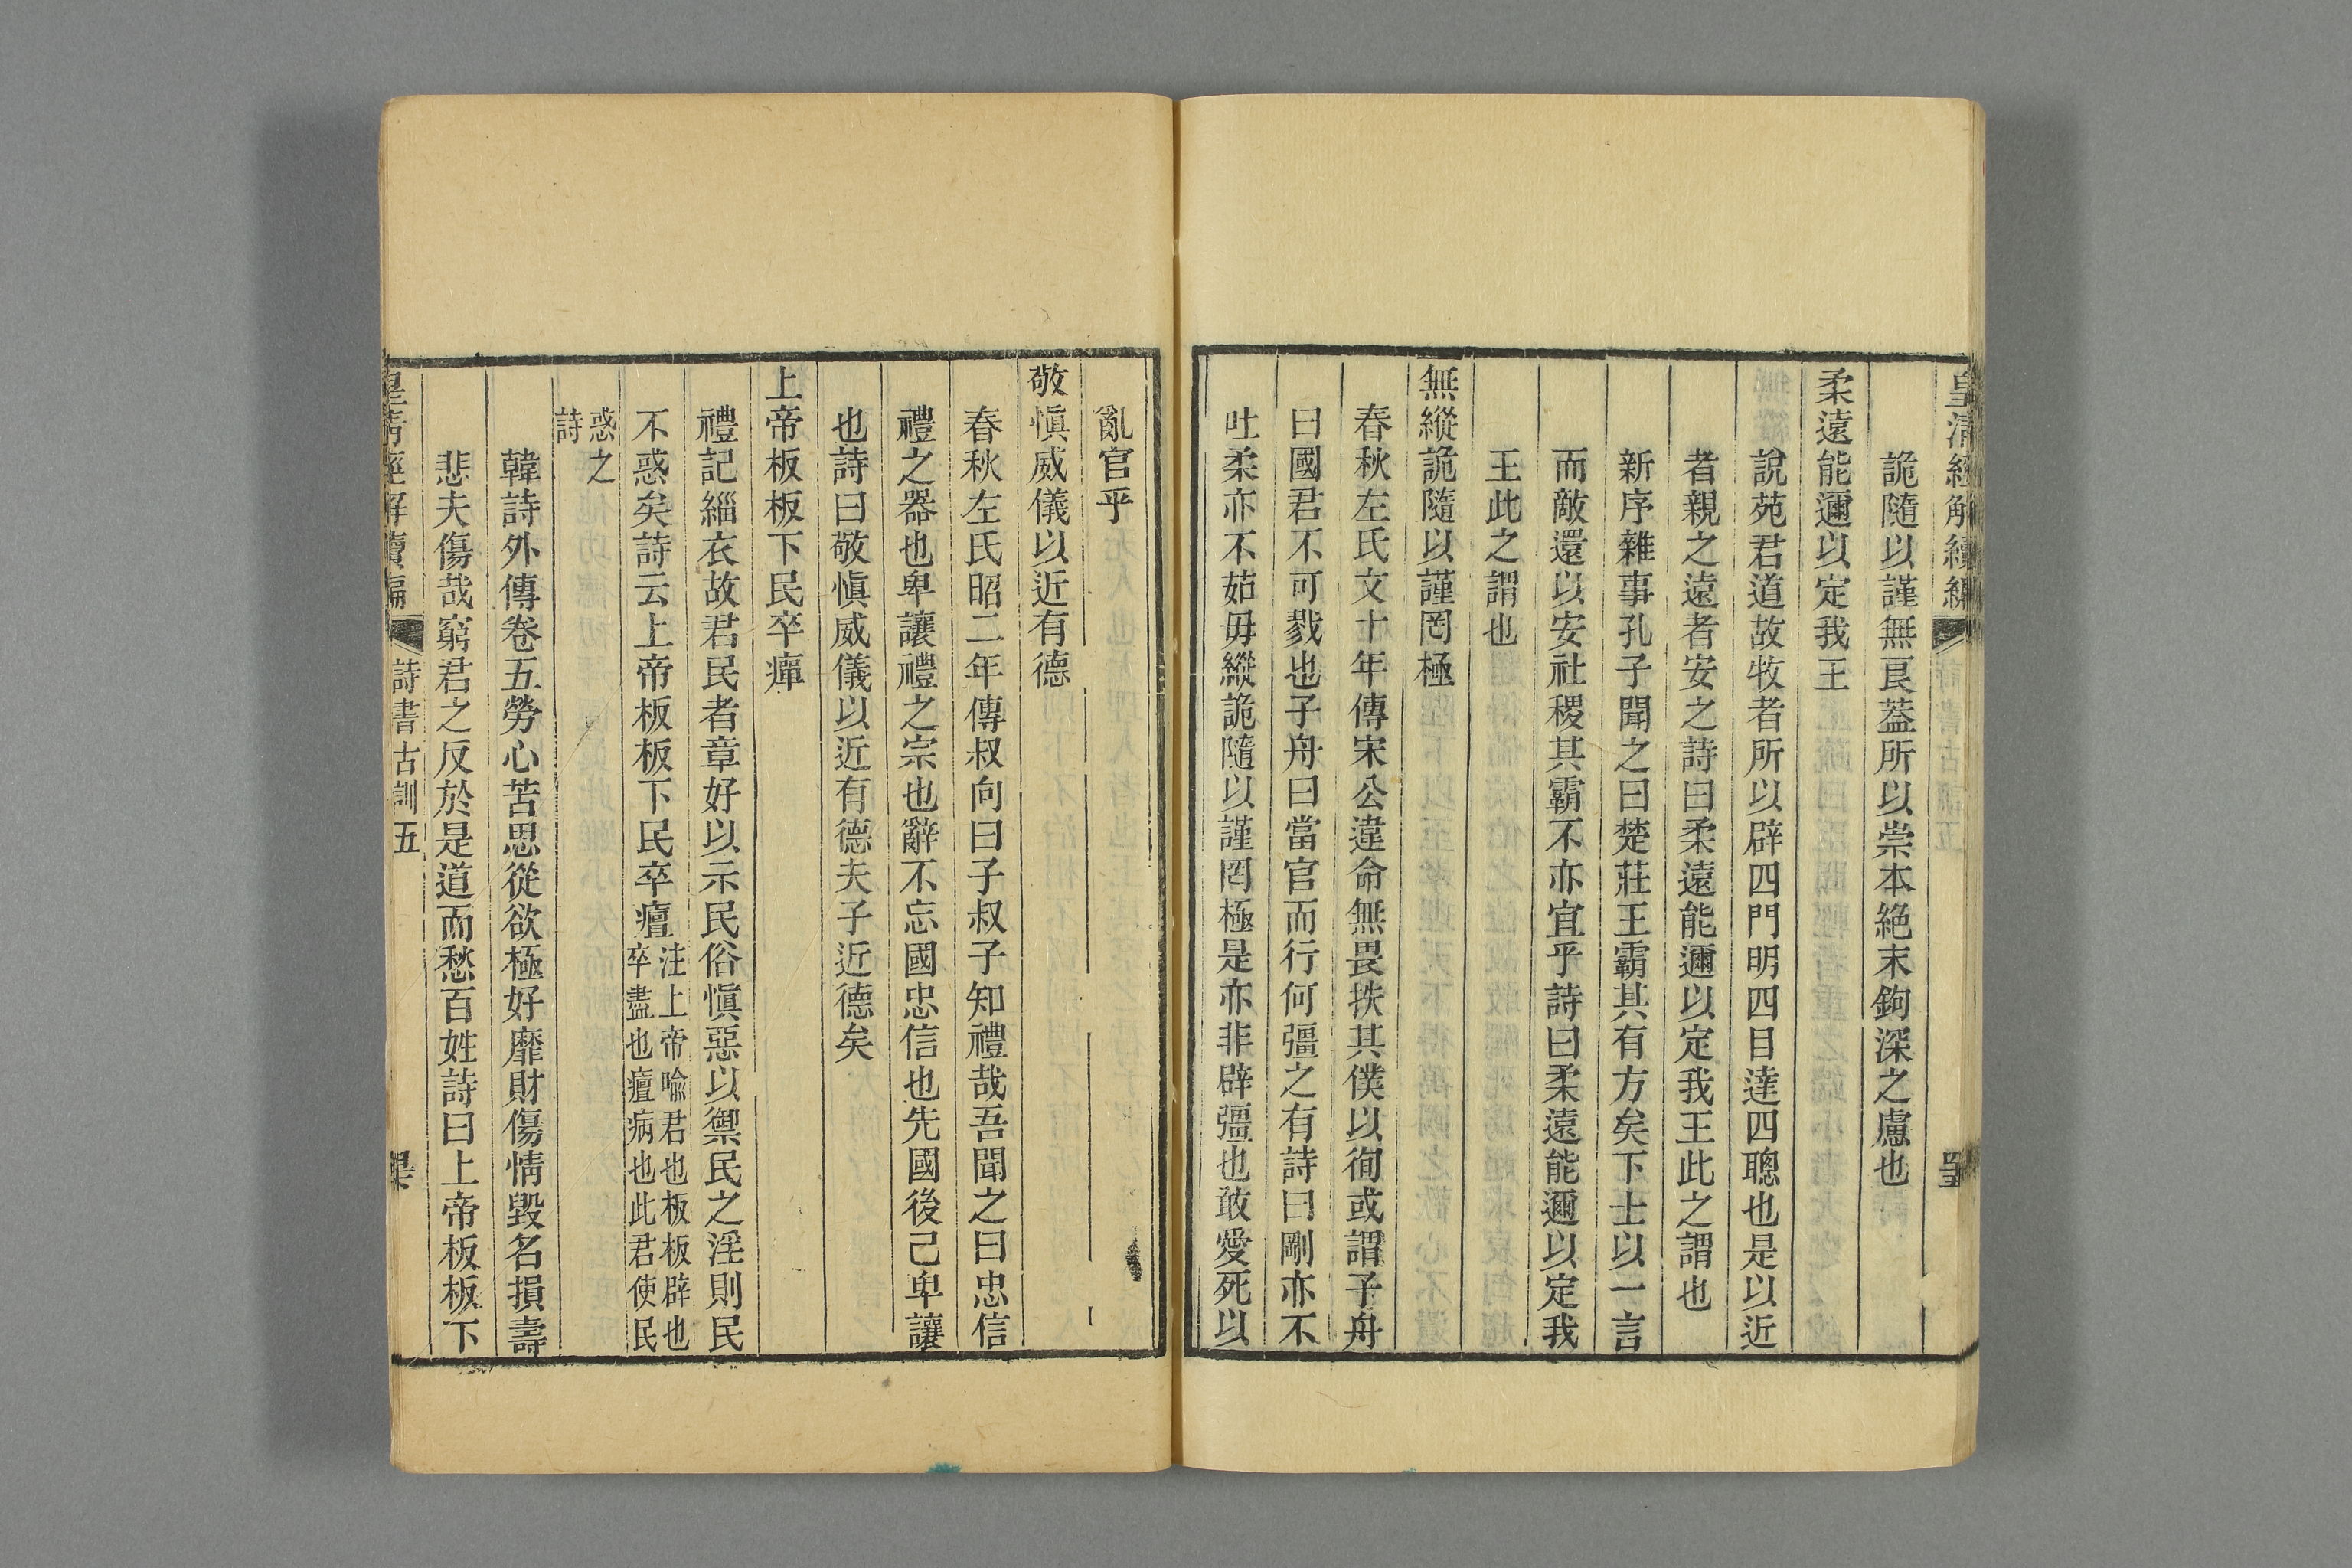 皇清經解續編
詭隨以謹無良蓋所以崇本絶末鉤深之慮也
柔遠能邇以定我王
說苑君道故牧者所以辟四門明四目達四聰也是以近
者親之遠者安之詩曰柔遠能邇以定我王此之謂也
新序雜事孔子聞之曰楚莊王霸其有方矣下士以一言
而敵還以安社稷其霸不亦宜乎詩曰柔遠能邇以定我
王此之謂也
無縱詭隨以謹罔極
春秋左氏文十年傳宋公違命無畏抶其僕以徇或謂子舟
曰國君不可戮也子舟曰當官而行何彊之有詩曰剛亦不
吐柔亦不茹毋縱詭隨以謹罔極是亦非辟彊也敢愛死以
亂官乎
敬慎威儀以近有德
春秋左氏昭二年傳叔向曰子叔子知禮哉吾聞之曰忠信
禮之器也卑讓禮之宗也辭不忘國忠信也先國後己卑讓
也詩曰敬慎威儀以近有德夫子近德矣
上帝板板下民卒癉
禮記緇衣故君民者章好以示民俗慎惡以禦民之淫則民
不惑矣詩云上帝板板下民卒㿇注上帝喻君也板板辟也
卒盡也㿇病也此君使民
惑之
詩
韓詩外傳卷五勞心苦思從欲極好靡財傷情毀名損壽
悲夫傷哉窮君之反於是道而愁百姓詩曰上帝板板下
皇清經解續編 詩書古訓五